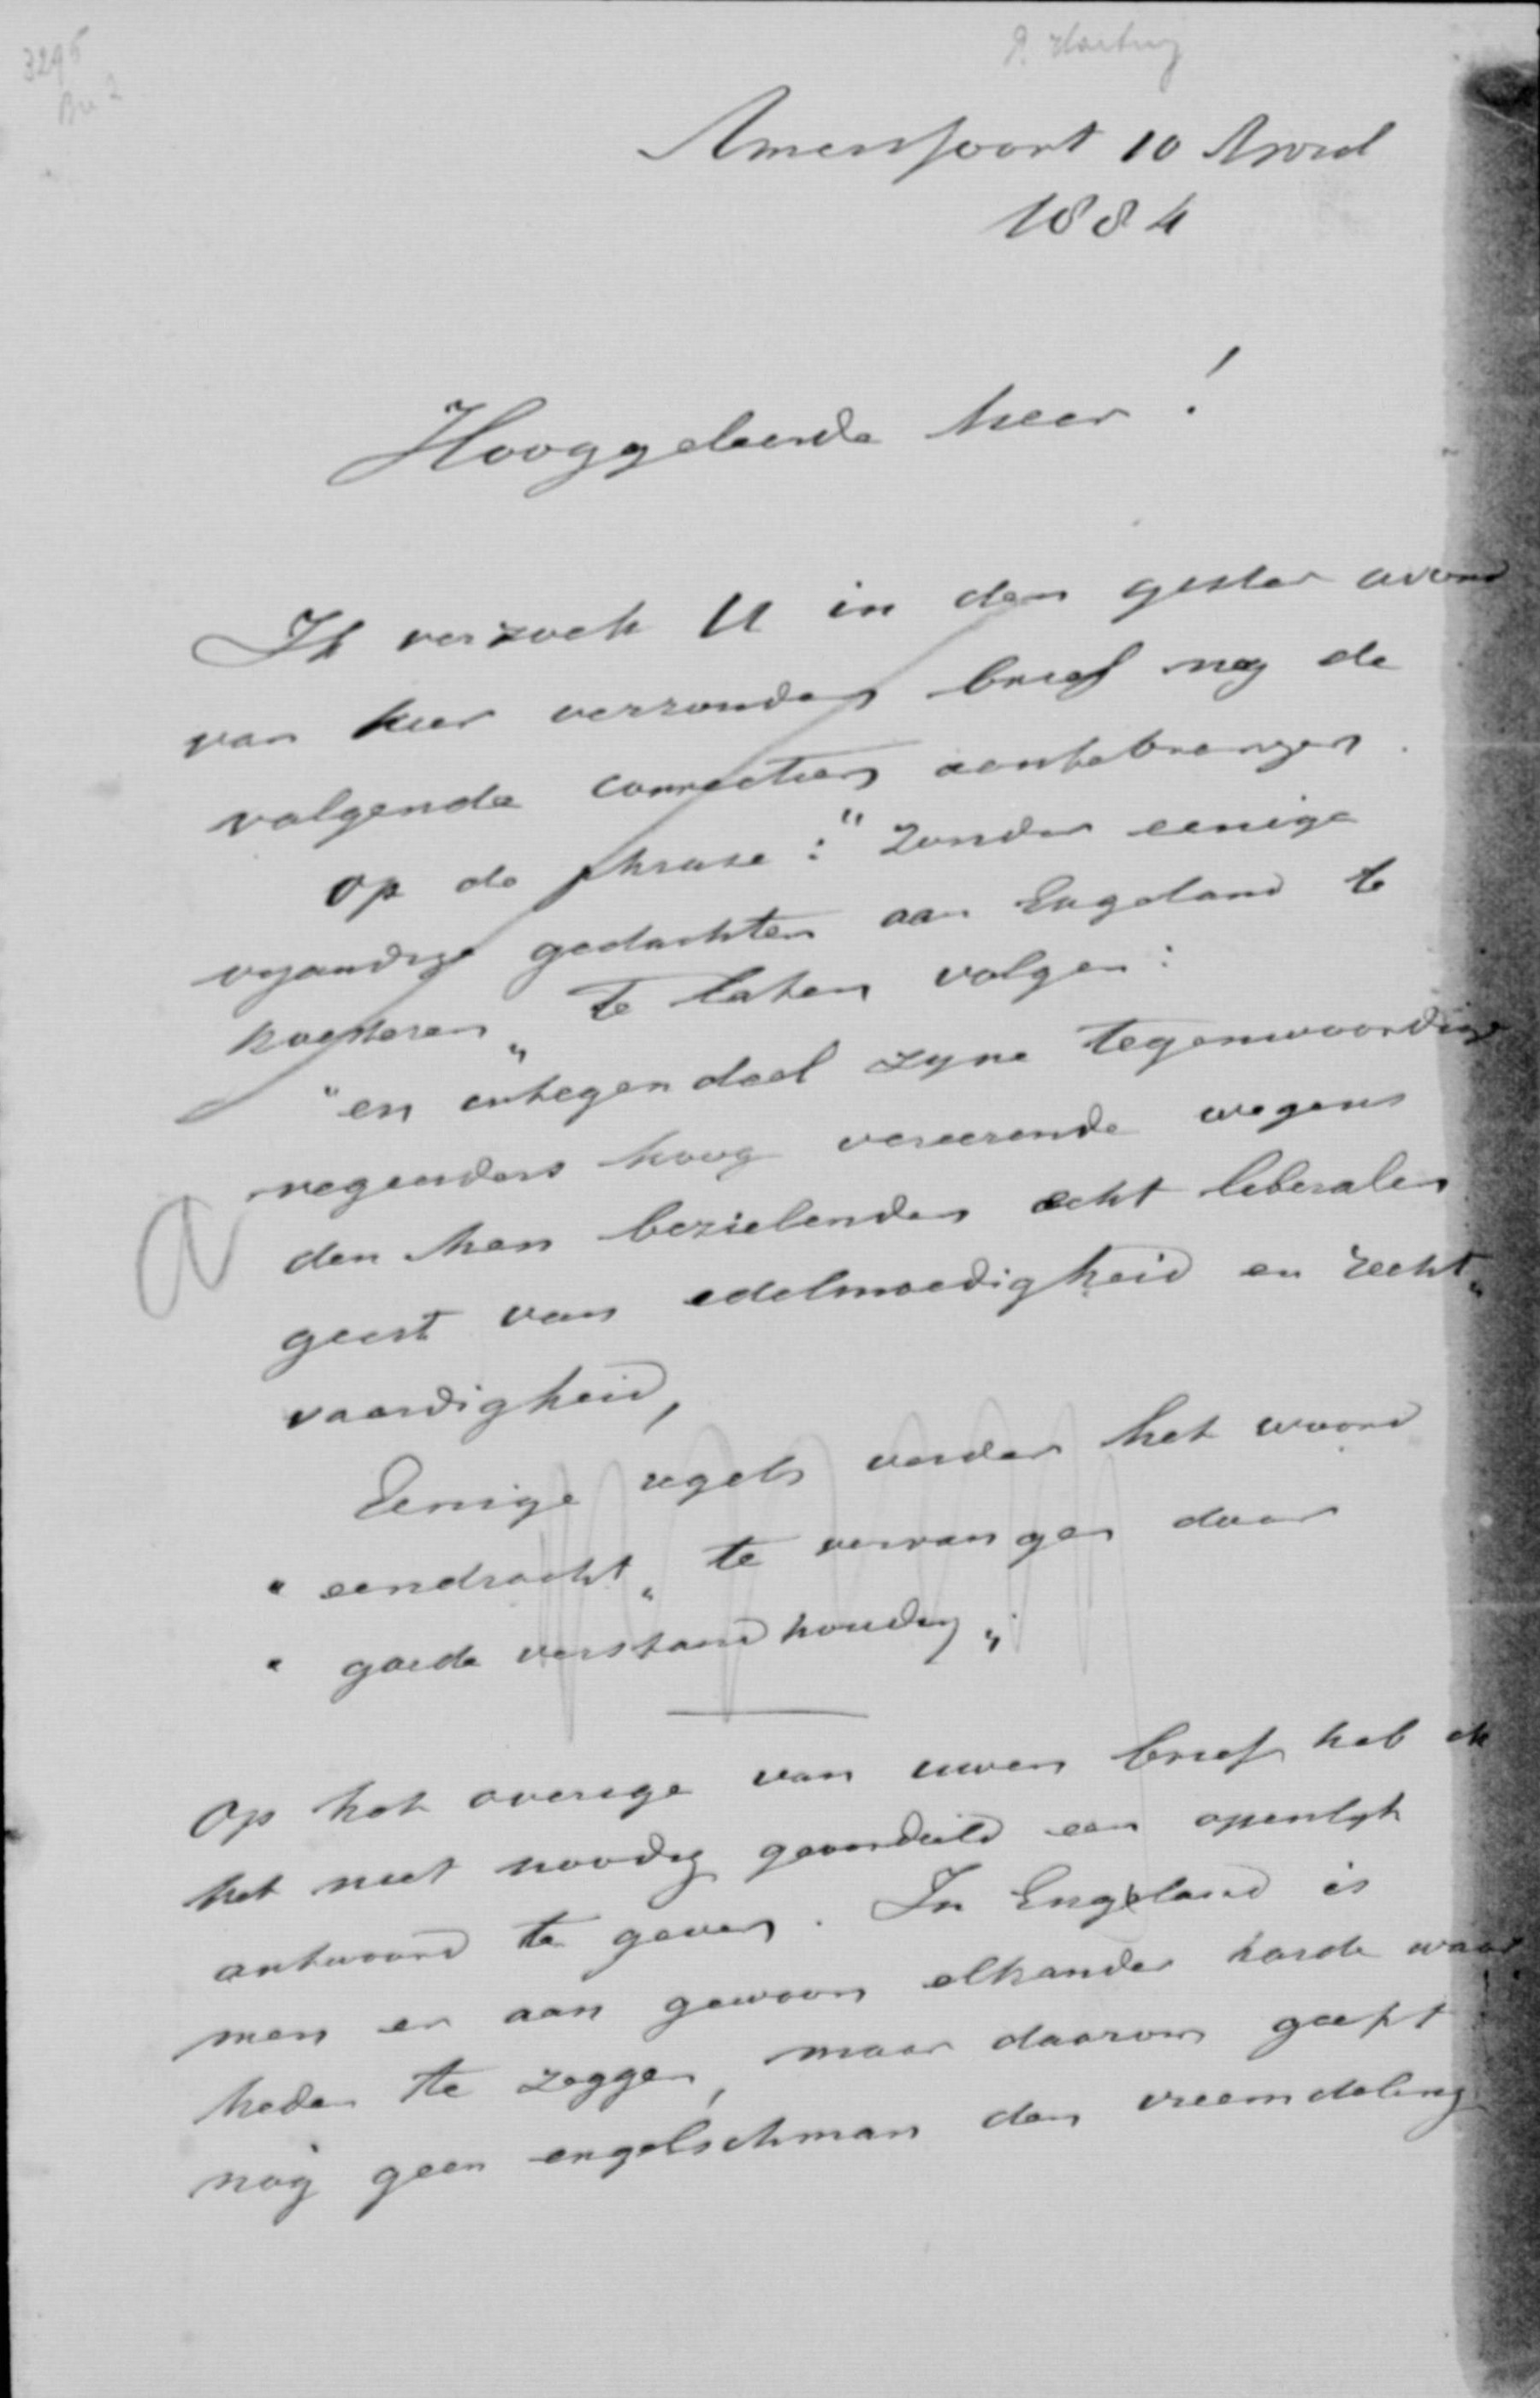 3295
P. Harting
Amersfoort 10 April
1884
Hooggeleerde heer!
Ik verzoek U in den gister avond
van hier verzonden brief nog de
volgende correctien aantebrengen.
Op de phrase: "Zonder eenige
vyandige gedachten aan Engeland te
koesteren„ te laten volgen:
"en integendeel zyne tegenwoordige
regeerders hoog vereerende wegens
den hen bezielenden echt liberalen
geest van edelmoedigheid en recht„
vaardigheid,
Eenige regels verder het woord
"eendracht„ te vervangen door
"goede verstandhouding„.
Op het overige van uwen brief heb ik
het niet noodig geoordeeld een openlyk
antwoord te geven. In Engeland is
men er aan gewoon elkander harde waar
heden te zeggen, maar daarom geeft
nog geen engelschman den vreemdeling